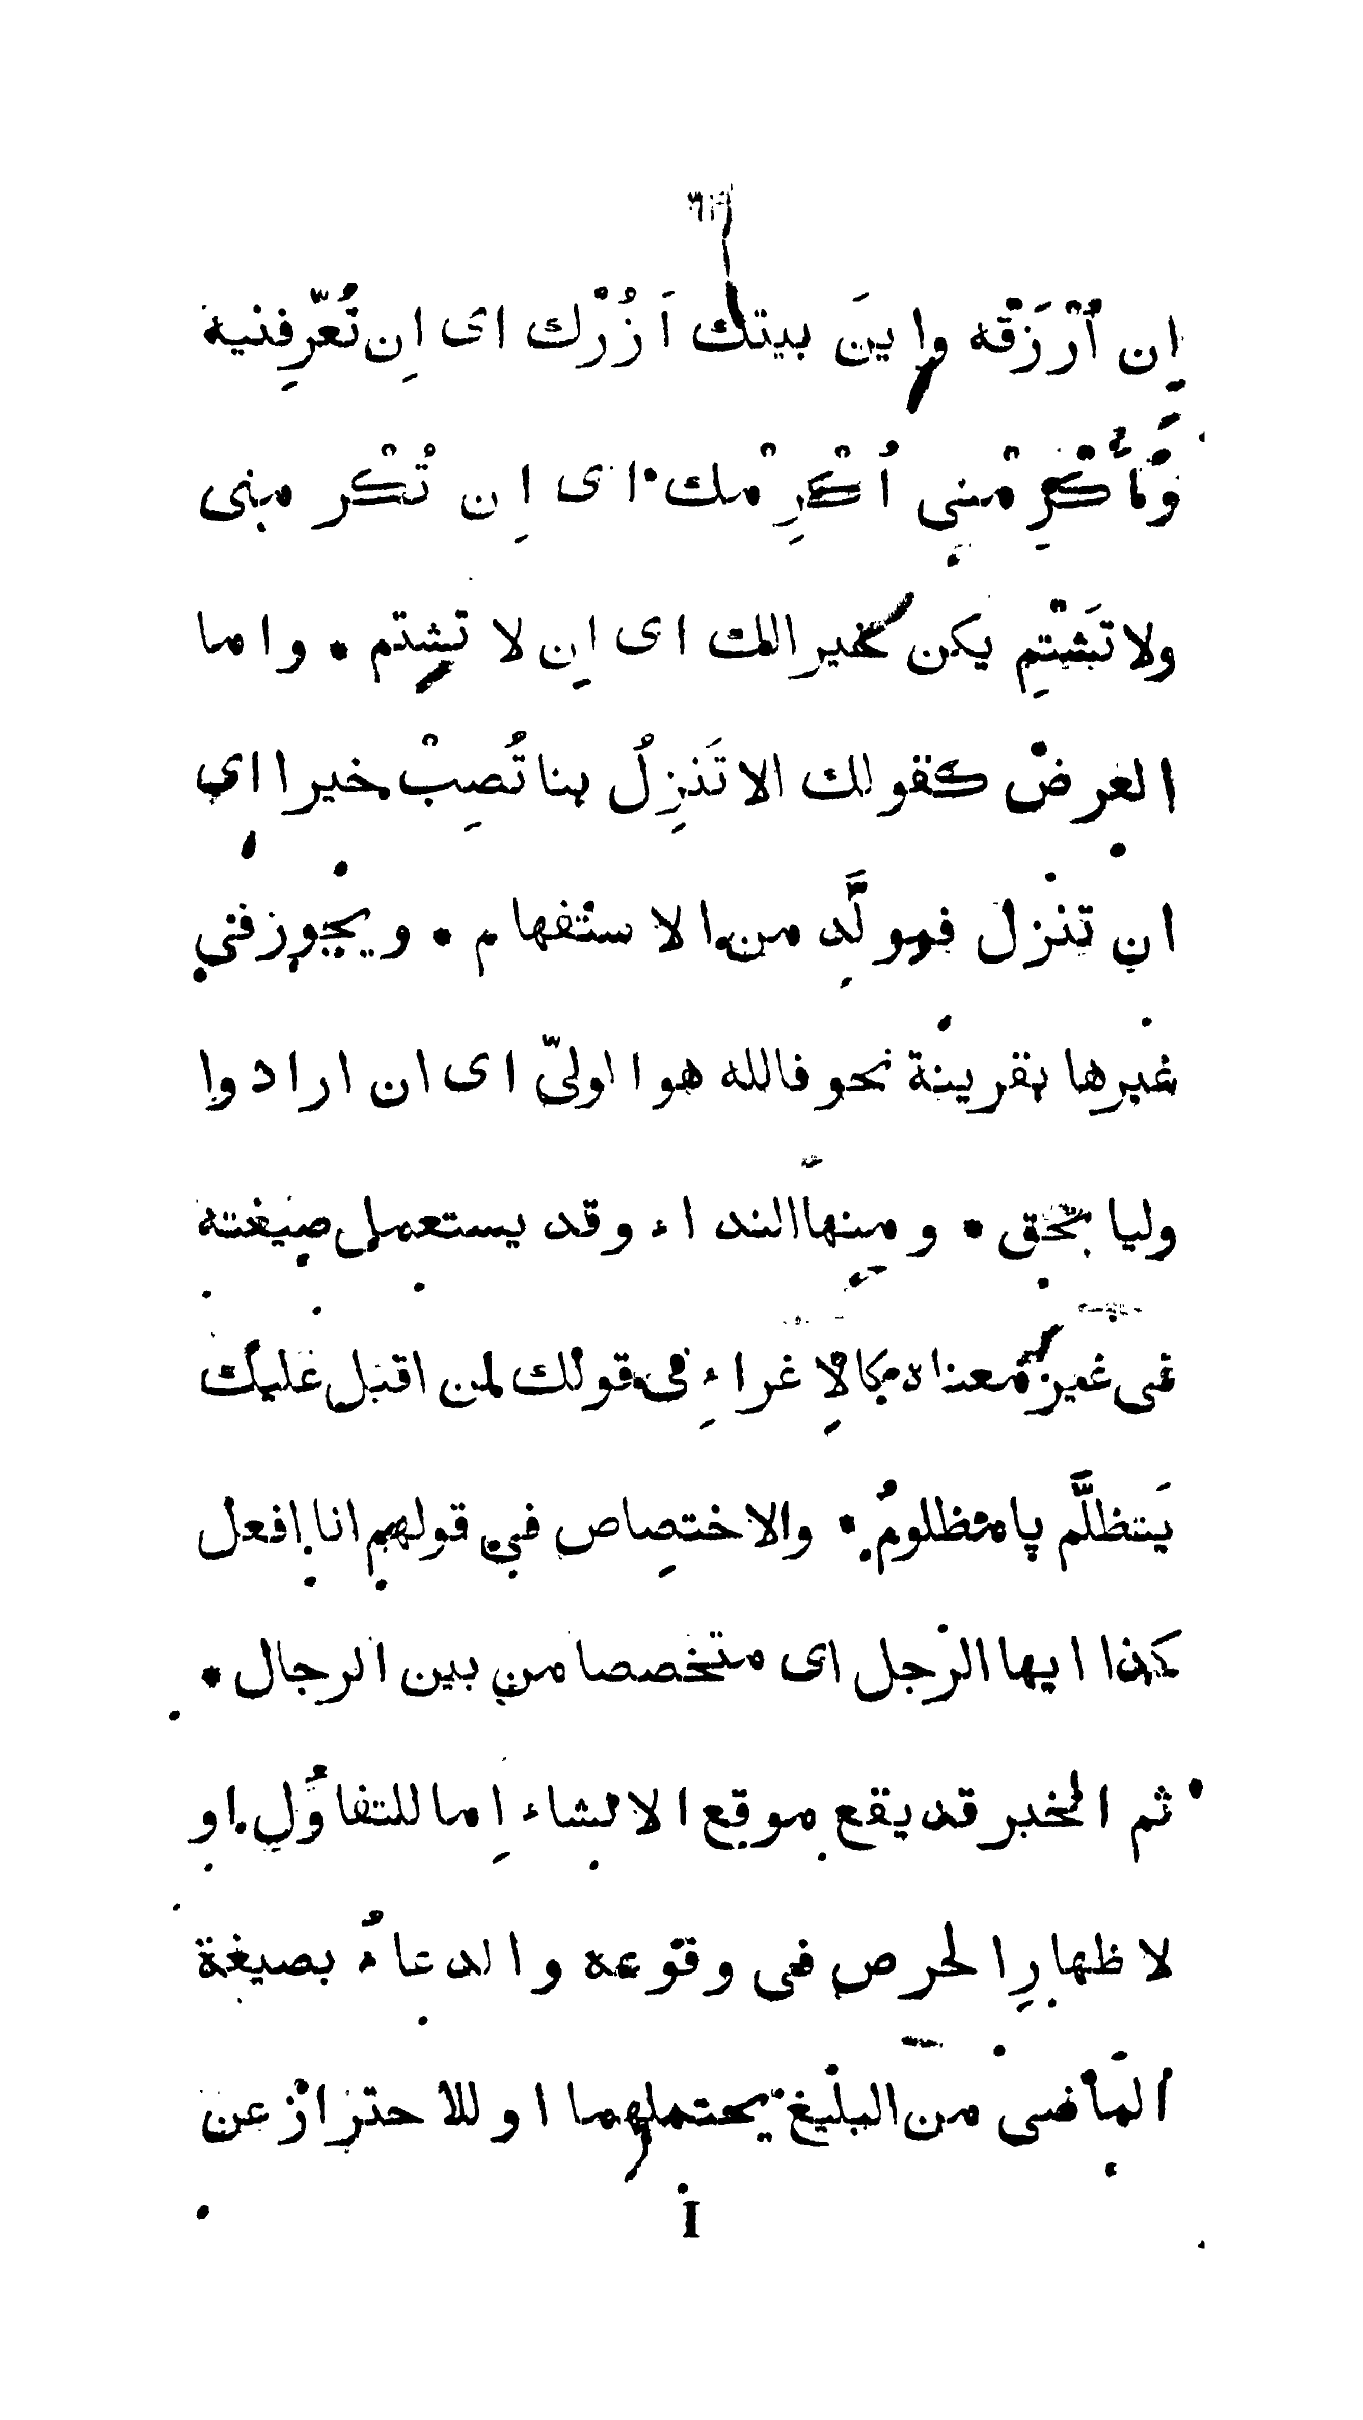 اِن اُرْزَقْه واَينَ بيتك اَزُرْك اى اِن تُعَرِّفنيه
وَاَكْرِمْني اُكْرِمْك اى اِن تُكْرمنى
ولا تَشْتِم يكن خيرا لك اى اِن لا تشتم • واما
العرض كقولك الا تَنزِلُ بنا تُصِبْ خيرا اى
ان تنزل فمولَّد من الاستفهام • ويجوز في
غيرها بقرينة نحو فالله هو الولىّ اى ان ارادوا
وليا بحق • ومنها النداء وقد يستعمل صيغته
فى غير معناه كالاِغراءِ فى قولك لمن اقبل عليك
يَتظلَّم يا مظلومُ • والاختصاص في قولهم انا افعل
كذا ايها الرجل اى متخصصا من بين الرجال •
ثم الخبر قد يقع موقع الانشاء اِما للتفاؤل او
لاظهارِ الحرص فى وقوعه والدعاءُ بصيغة
الماضى من البليغ يحتملهما او للاحتراز عن
I